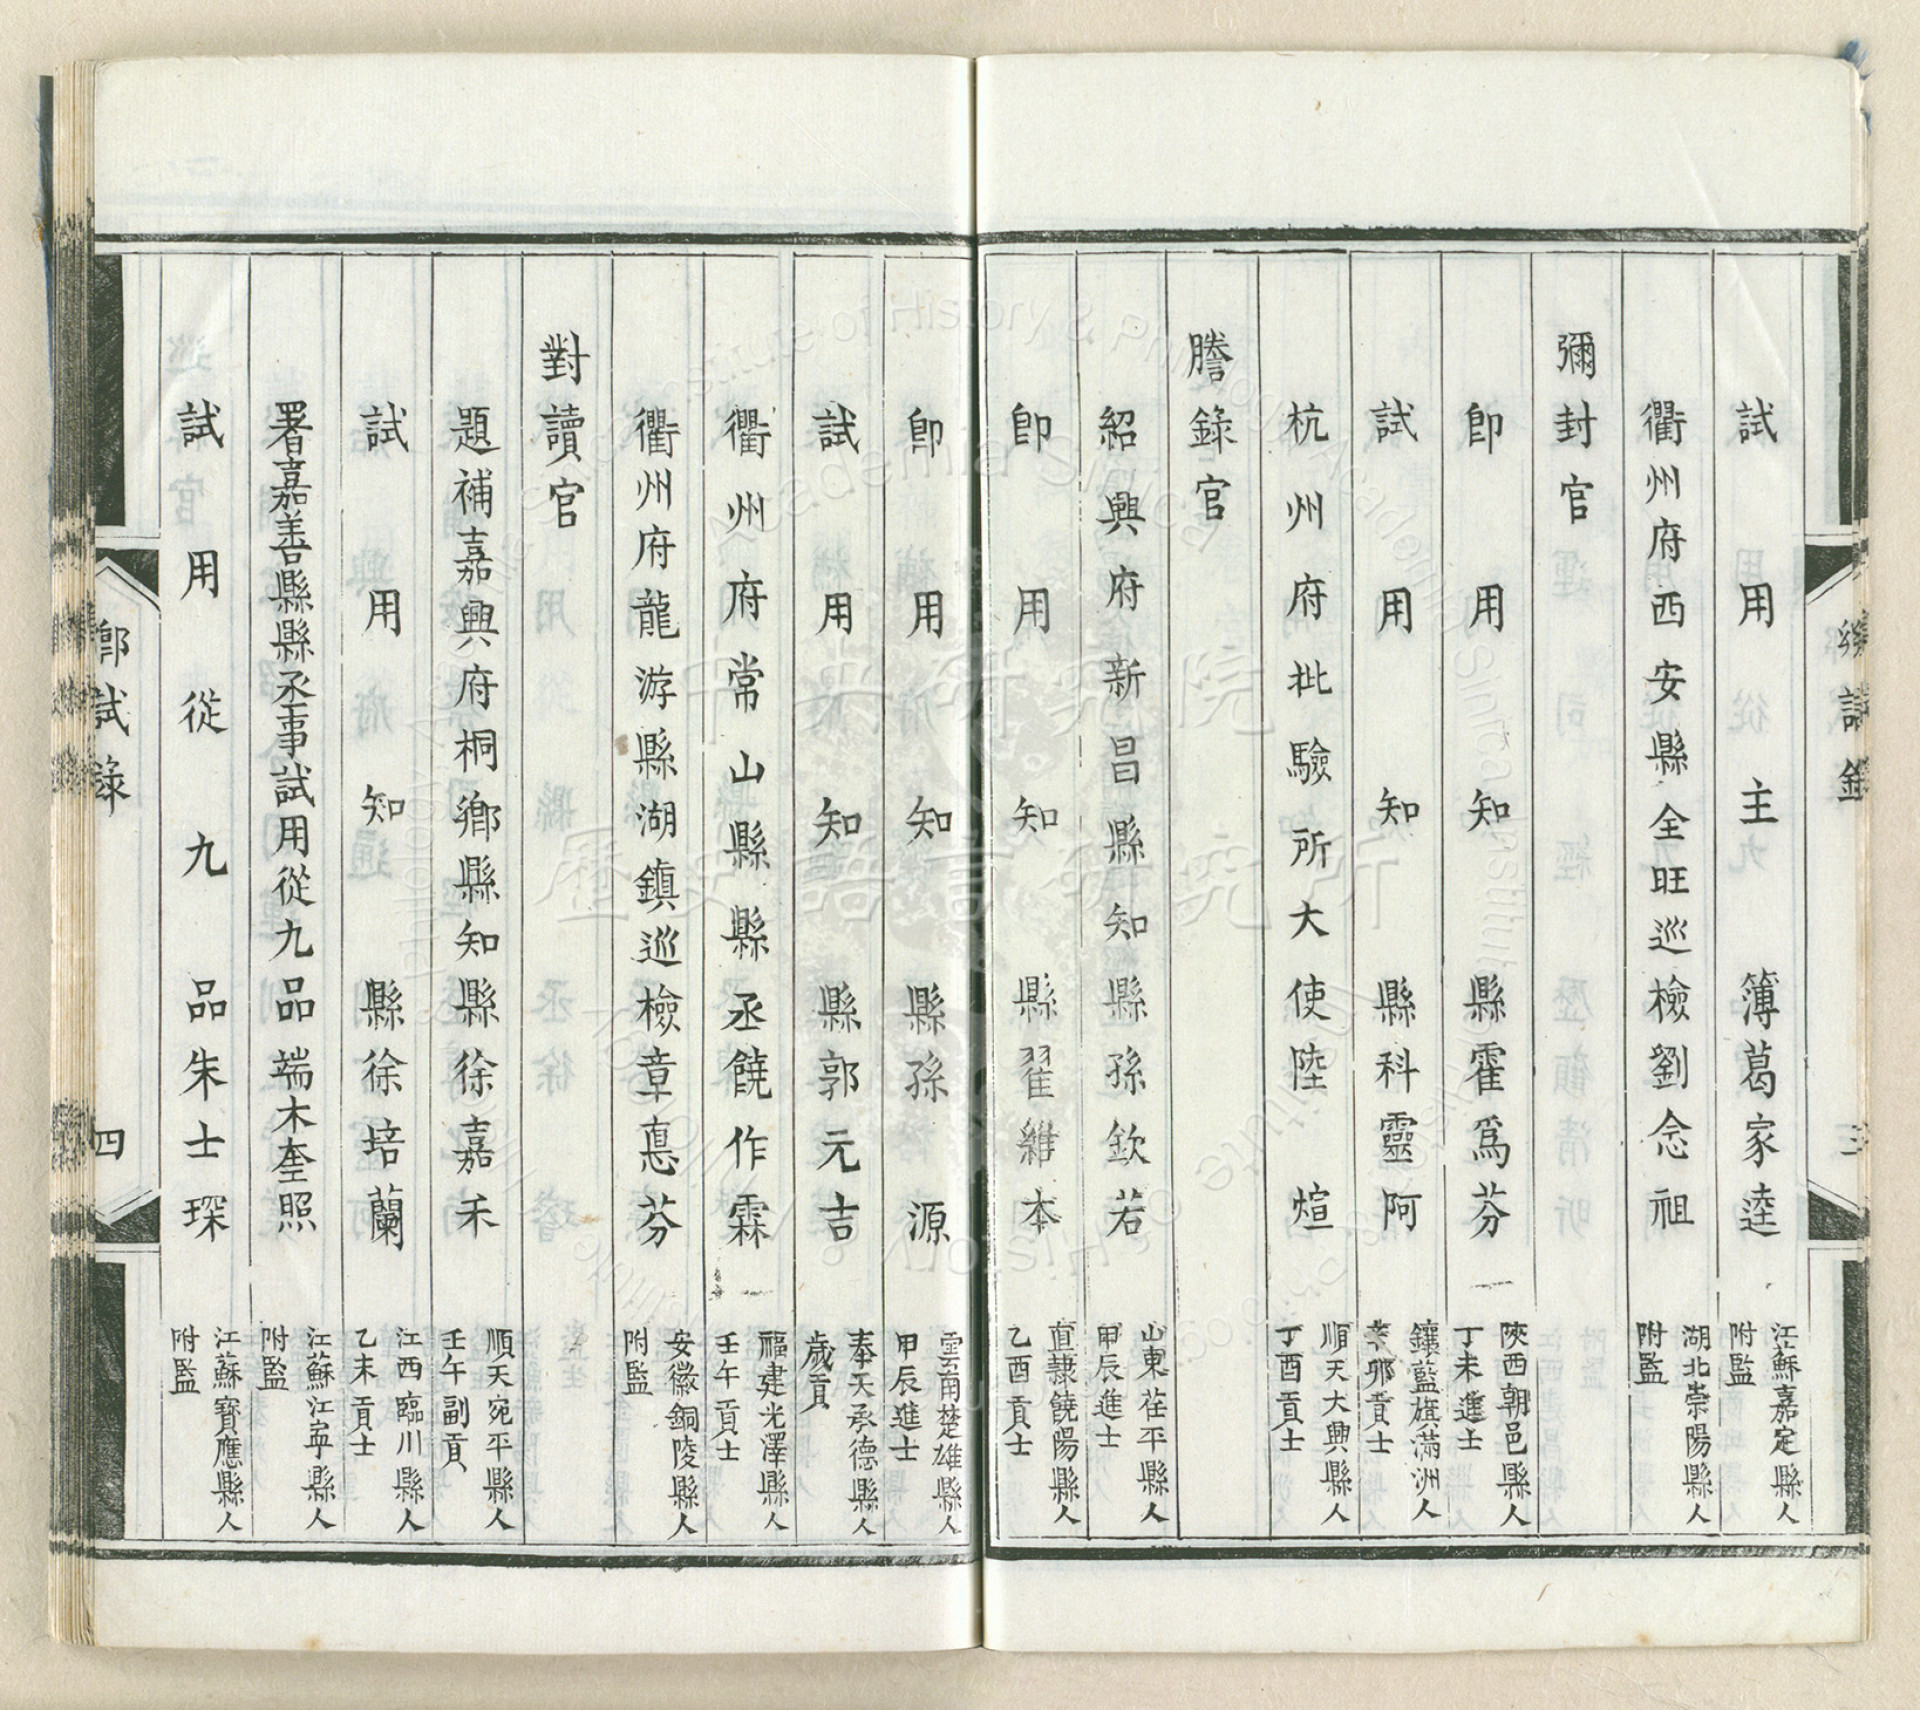 鄉試錄
三
試用主簿葛家逵 江蘇嘉定縣人 附監
衢州府西安縣全旺巡檢劉念祖 湖北崇陽縣人 附監
彌封官
卽用知縣霍爲芬 陝西朝邑縣人 丁未進士
試用知縣科靈阿 鑲藍旗滿洲人 辛卯貢士
杭州府批驗所大使陸煊 順天大興縣人 丁酉貢士
謄錄官
紹興府新昌縣知縣孫欽若 山東茌平縣人 甲辰進士
卽用知縣翟維本 直隷饒陽縣人 乙酉貢士
卽用知縣孫源 雲南楚雄縣人 甲辰進士
試用知縣郭元吉 奉天承德縣人 歲貢
衢州府常山縣縣丞饒作霖 福建光澤縣人 壬午貢士
衢州府龍游縣湖鎮巡檢章惪芬 安徽銅陵縣人 附監
對讀官
題補嘉興府桐鄉縣知縣徐嘉禾 順天宛平縣人 壬午副貢
試用知縣徐培蘭 江西臨川縣人 乙未貢士
署嘉善縣縣丞事試用從九品端木奎照 江蘇江寧縣人 附監
試用從九品朱士琛 江蘇寶應縣人 附監
鄉試錄
四
中央研究院
歷史語言研究所
Institute of History & Philology, Academia Sinica